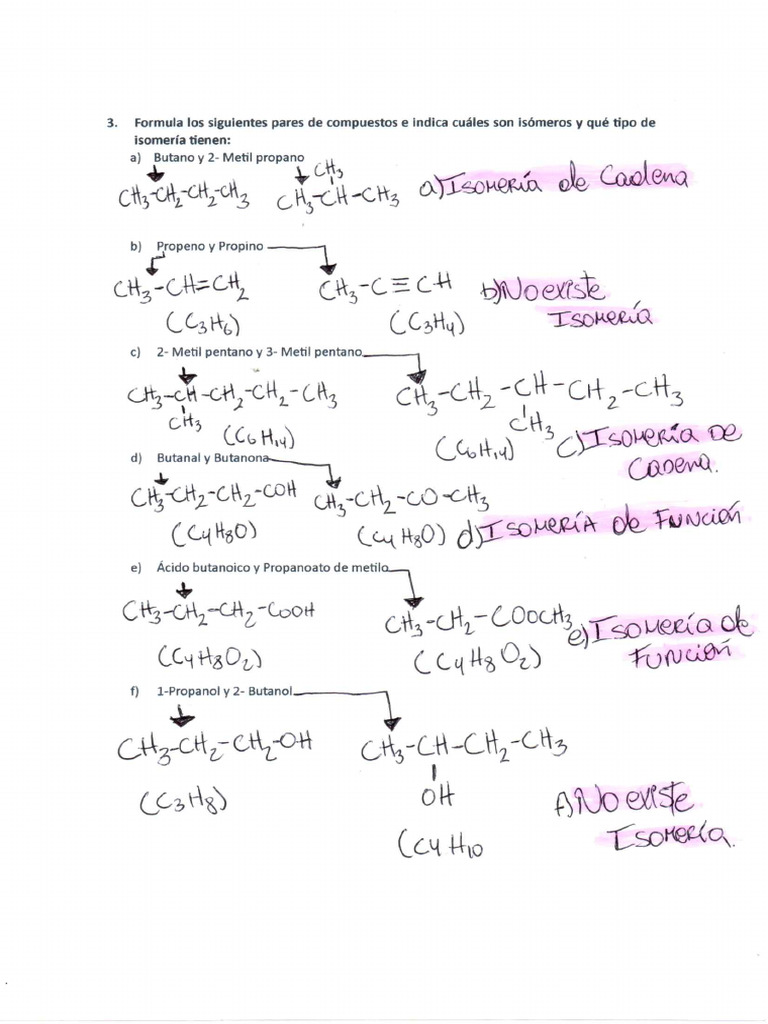 3. Formula los siguientes pares de compuestos e indica cuáles son isómeros y qué tipo de
isomería tienen:
a) Butano y 2- Metil propano
CH3
CH3-CH2-CH2-CH3 CH3-CH-CH3 a) ISOMERÍA de Cadena
b) Propeno y Propino
CH3-CH=CH2 CH3-C≡CH b) No existe
(C3H6) (C3H4) ISOMERÍA
c) 2- Metil pentano y 3- Metil pentano
CH3-CH-CH2-CH2-CH3 CH3-CH2-CH-CH2-CH3
CH3 CH3
(C6H14) (C6H14) c) ISOMERÍA DE
CADENA.
d) Butanal y Butanona
CH3-CH2-CH2-COH CH3-CH2-CO-CH3
(C4H8O) (C4H8O) d) ISOMERÍA de FUNCIÓN
e) Ácido butanoico y Propanoato de metilo
CH3-CH2-CH2-COOH CH3-CH2-COOCH3
e) ISOMERÍA de
(C4H8O2) (C4H8O2) FUNCIÓN
f) 1-Propanol y 2- Butanol
CH3-CH2-CH2-OH CH3-CH-CH2-CH3
(C3H8) OH f) No existe
(C4H10 ISOMERÍA.